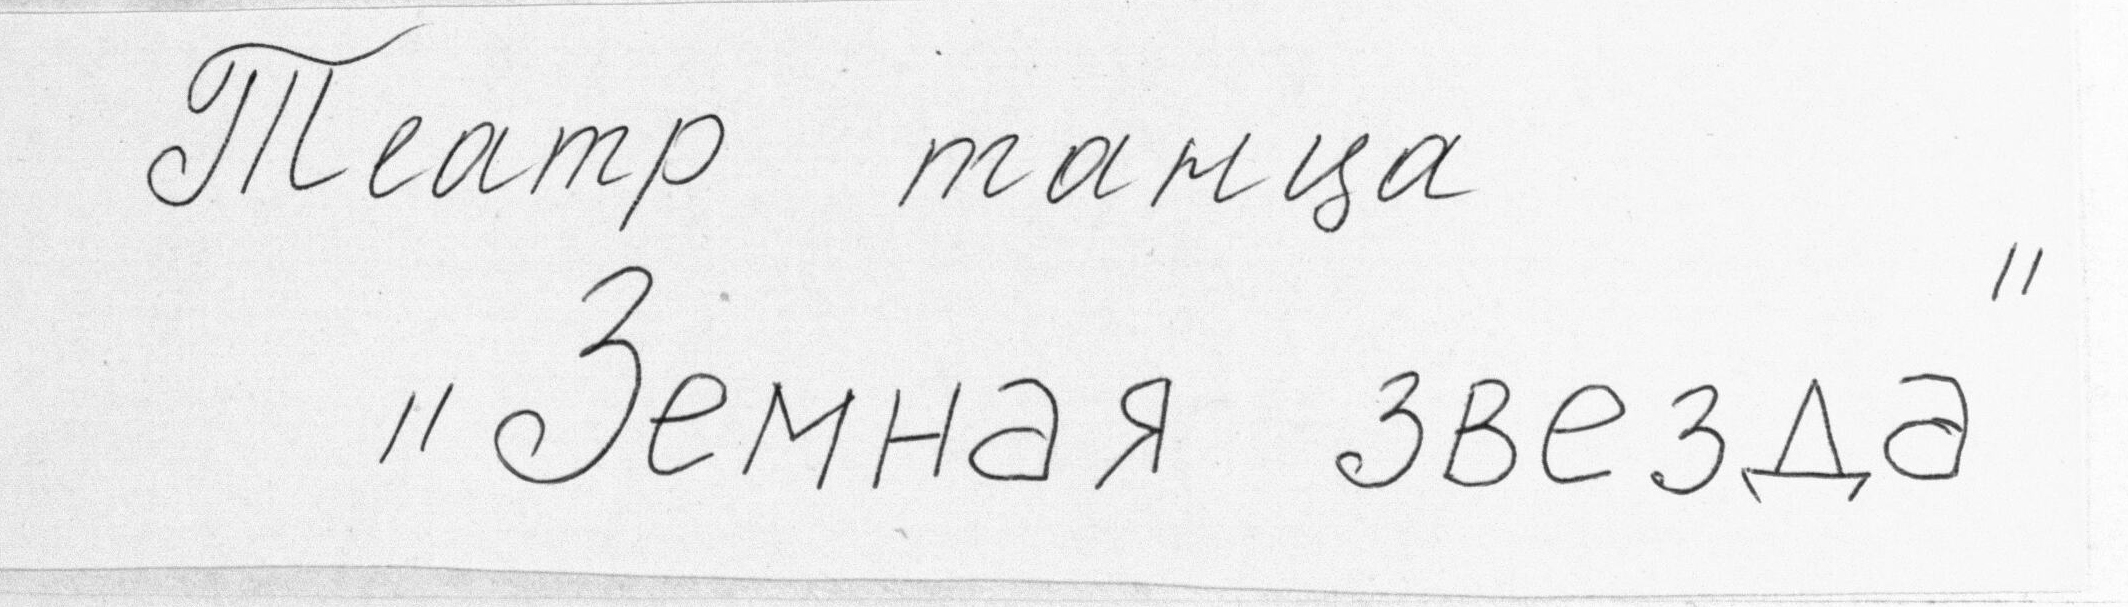 Театр танца
"Земная звезда"